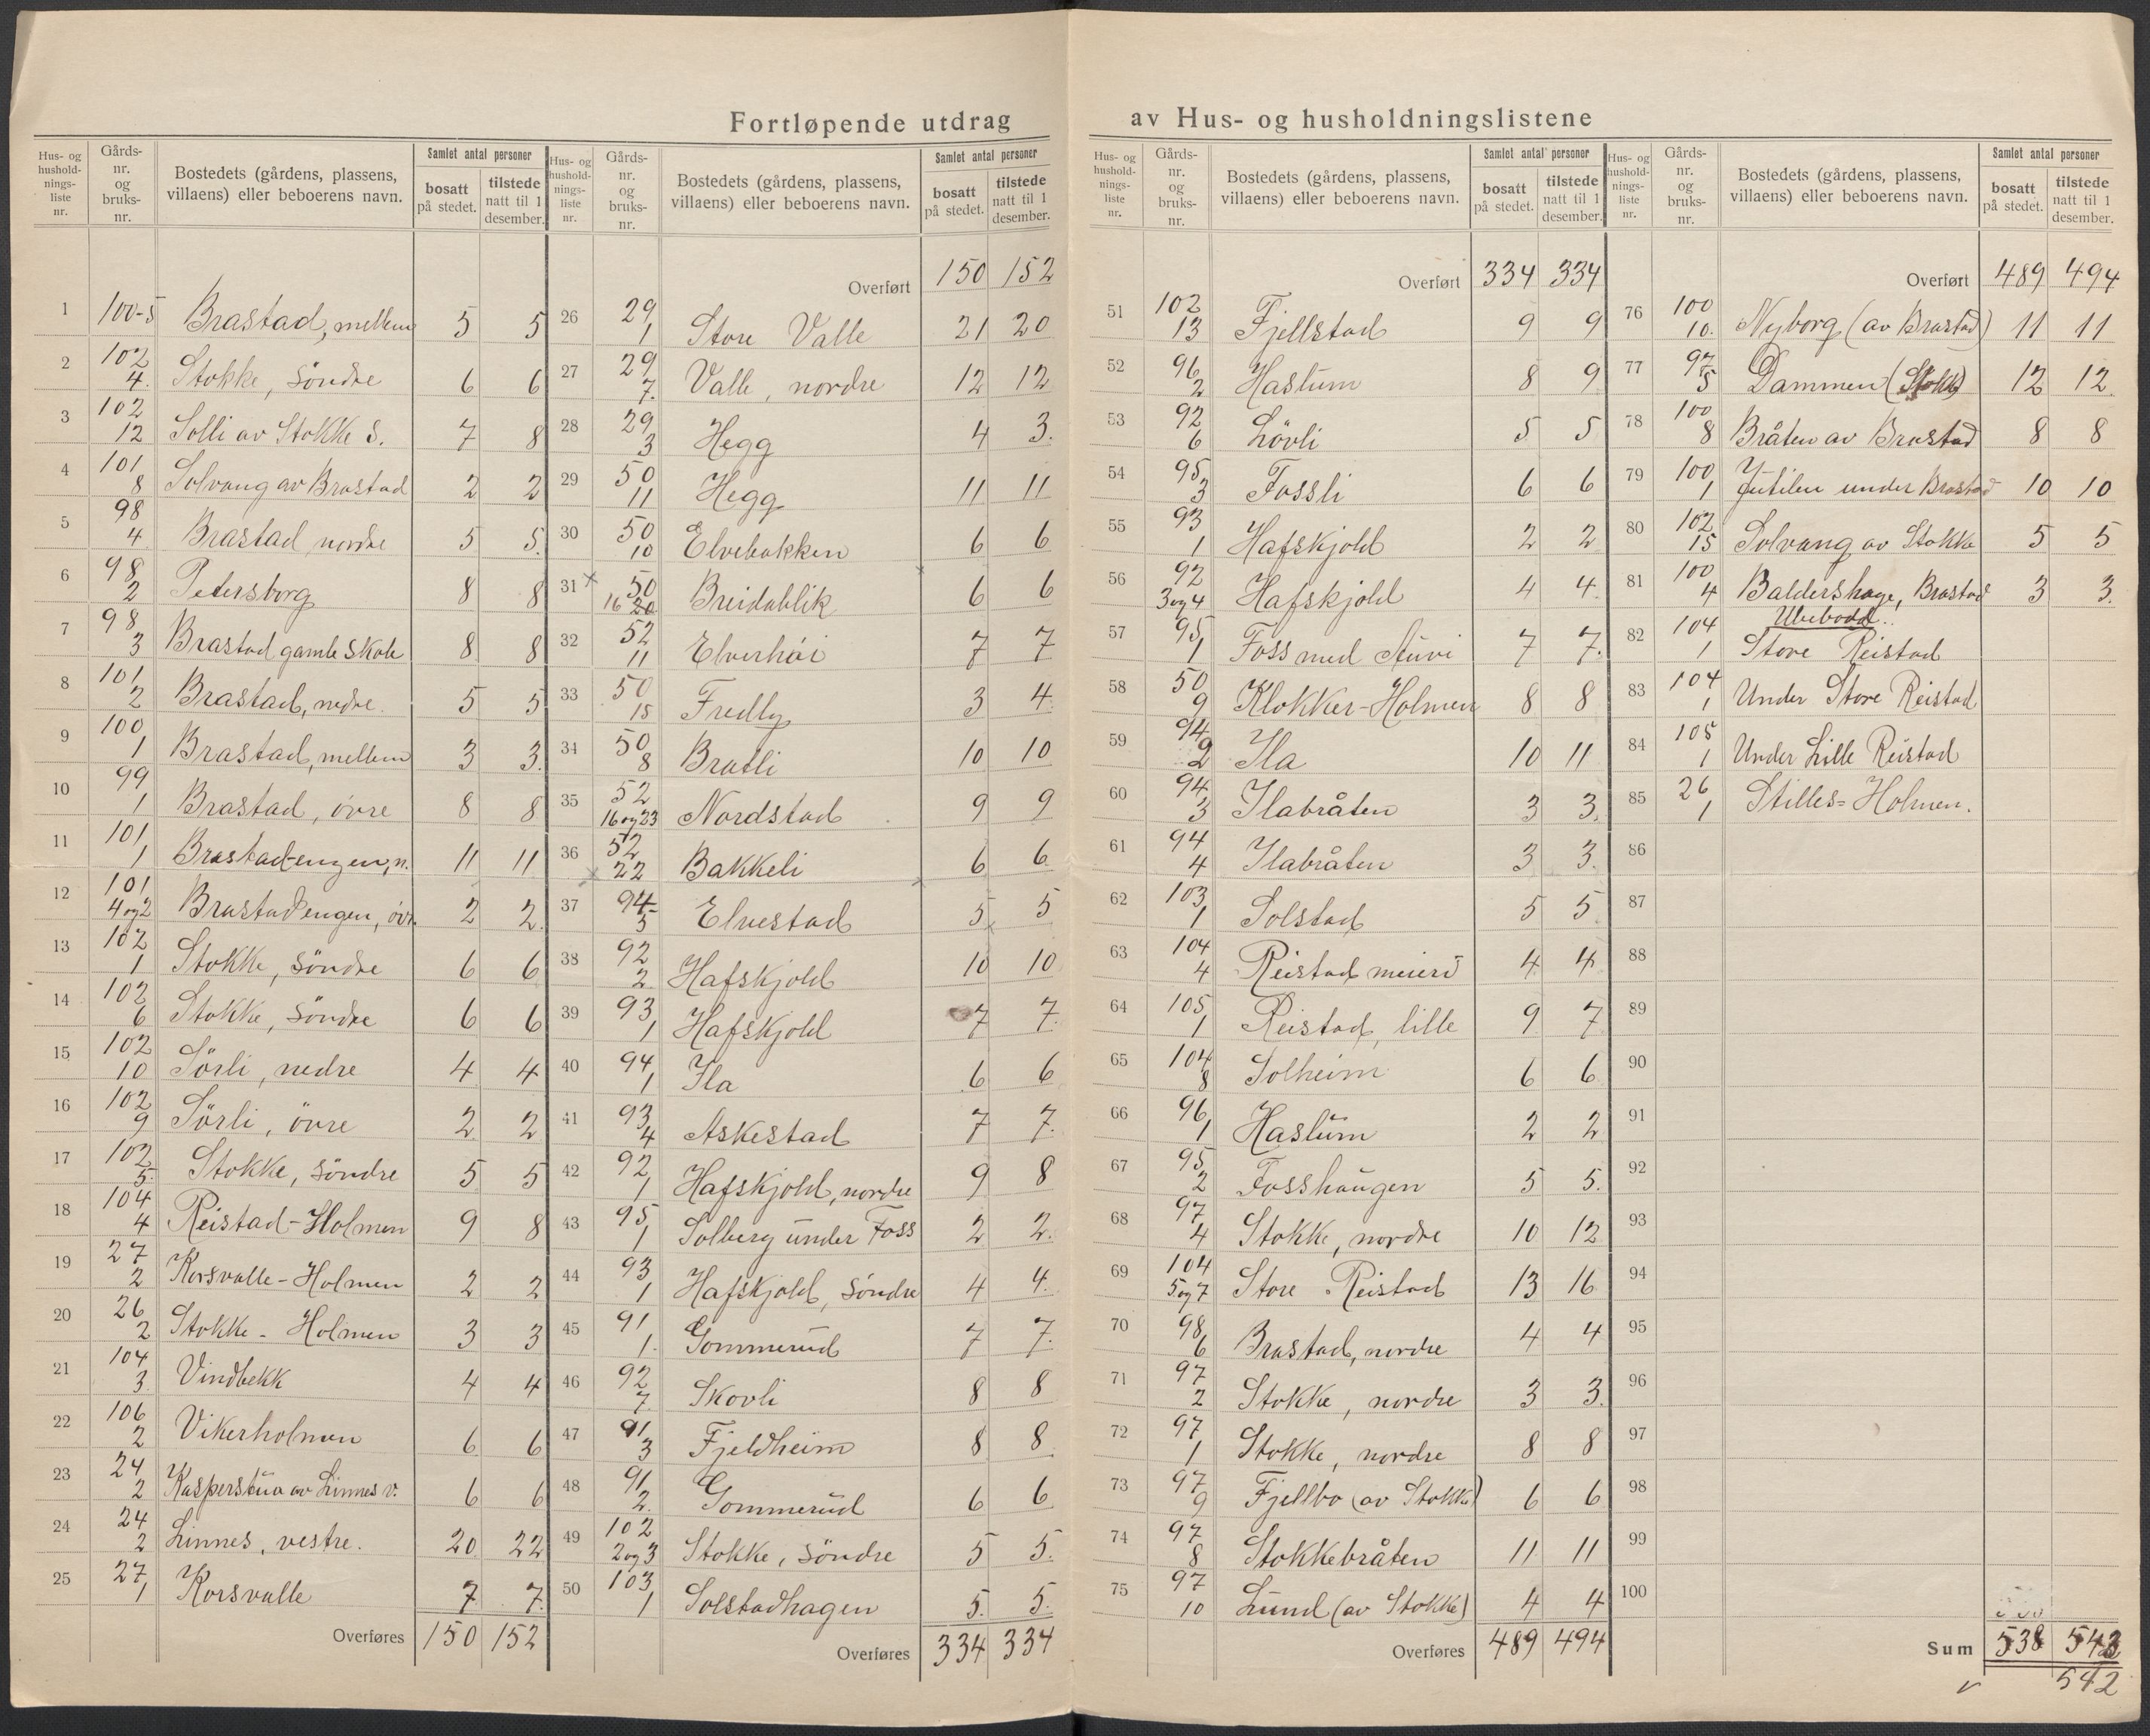 Fortløpende utdrag av Hus- og husholdningslistene
Hus- og hushold-nings-liste nr. | Gårds-nr. og bruks-nr. | Bostedets (gårdens, plassens, villaens) eller beboerens navn. | Samlet antal personer | bosatt på stedet. | tilstede natt til 1 desember.
1 100-5 Brastad, mellem 5 5
2 102 4. Stokke, söndre 6 6
3 102 12 Solli av Stokke s. 7 8
4 101 8 Solvang av Brastad 2 2
5 98 4 Brastad nordre 5 5.
6 98 2 Petersborg 8 8
7 98 3 Brastad gamle skole 8 8
8 101 2 Brastad, nedre. 5 5
9 100 1 Brastad, mellem 3 3.
10 99 1 Brastad, övre 8 8
11 101 1 Brastadengen, n. 11 11
12 101 4 og 2 Brastadengen, övr. 2 2.
13 102 1 Stokke, söndre 6 6
14 102 6 Stokke, söndre 6 6
15 102 10 Sörli, nedre 4 4
16 102 9 Sörli, övre 2 2
17 102 5. Stokke, söndre 5 5
18 104 4 Reistad-Holmen 9 8
19 27 2 Korsvalle-Holmen 2 2
20 26 2 Stokke - Holmen 3 3
21 104 3 Vindbekk 4 4
22 106 2 Vikerholmen 6 6
23 24 2 Kasperstua av Linnes v. 6 6
24 24 2 Linnes, vestre. 20 22
25 27 1 Korsvalle 7 7.
Overføres 150 152
Hus- og hushold-nings-liste nr. | Gårds-nr. og bruks-nr. | Bostedets (gårdens, plassens, villaens) eller beboerens navn. | Samlet antal personer | bosatt på stedet. | tilstede natt til 1 desember.
Overført 150 152
26 29 1 Store Valle 21 20
27 29 7. Valle, nordre 12 12
28 29 3 Hegg 4 3.
29 50 11 Hegg 11 11
30 50 10 Elvebakken 6 6
31 50 16 20 Breidablik 6 6
32 52 11 Elverhöi 7 7
33 50 15 Fredly 3 4
34 50 8 Bratli 10 10
35 52 16 og 23 Nordstad 9 9
36 52 22 Bakkeli 6 6
37 94 5 Elvestad 5 5
38 92 2 Hafskjold 10 10
39 93 1 Hafskjold 7 7.
40 94 1 Ila 6 6
41 93 4 Askestad 7 7.
42 92 1 Hafskjold, nordre 9 8
43 95 1 Solberg under Foss 2 2.
44 93 1 Hafskjold, söndre 4 4.
45 91 1. Gommerud 7 7.
46 92 7. Skovli 8 8
47 91 3 Fjeldheim 8 8
48 91 2. Gommerud 6 6
49 102 2 og 3 Stokke, söndre 5 5.
50 103 1 Solstadhagen 5. 5.
Overføres 334 334
Hus- og hushold-nings-liste nr. | Gårds-nr. og bruks-nr. | Bostedets (gårdens, plassens, villaens) eller beboerens navn. | Samlet antal personer | bosatt på stedet. | tilstede natt til 1 desember.
Overført 334 334
51 102 13 Fjellstad 9 9
52 96 2 Haslum 8 9
53 92 6 Lövli 5 5
54 95 3 Fossli 6 6
55 93 1 Hafskjold 2 2
56 92 3 og 4 Hafskjold 4 4.
57 95 1 Foss med Stuvi 7 7.
58 50 9 Klokker-Holmen 8 8
59 94 2 Ila 10 11
60 94 3 Ilabråten 3 3.
61 94 4 Ilabråten 3 3.
62 103 1 Solstad 5 5
63 104 4 Reistad meieri 4 4
64 105 1 Reistad, lille 9 7
65 104 8 Solheim 6 6
66 96 1 Haslum 2 2
67 95 2 Fosshaugen 5 5.
68 97 4 Stokke, nordre 10 12
69 104 5 og 7 Store Reistad 13 16
70 98 6 Brastad, nordre 4 4
71 97 2 Stokke, nordre 3 3.
72 97 1 Stokke, nordre 8 8
73 97 9 Fjellbo (av Stokke) 6 6
74 97 8 Stokkebråten 11 11
75 97 10 Lund (av Stokke) 4 4
Overføres 489 494
Hus- og hushold-nings-liste nr. | Gårds-nr. og bruks-nr. | Bostedets (gårdens, plassens, villaens) eller beboerens navn. | Samlet antal personer | bosatt på stedet. | tilstede natt til 1 desember.
Overført 489 494
76 100 10. Nyborg (av Brastad) 11 11
77 97 5 Dammen (Stokke) 12 12.
78 100 8 Bråten av Brastad 8 8
79 100 1 Jutilen under Brastad 10 10
80 102 15 Solvang av Stokke 5 5
81 100 4 Baldershage, Brastad 3 3.
Ubebodd.
82 104 1 Store Reistad
83 104 1 Under Store Reistad
84 105 1 Under Lille Reistad
85 26 1 Stilles-Holmen.
86
87
88
89
90
91
92
93
94
95
96
97
98
99
100
Sum 538 543
542